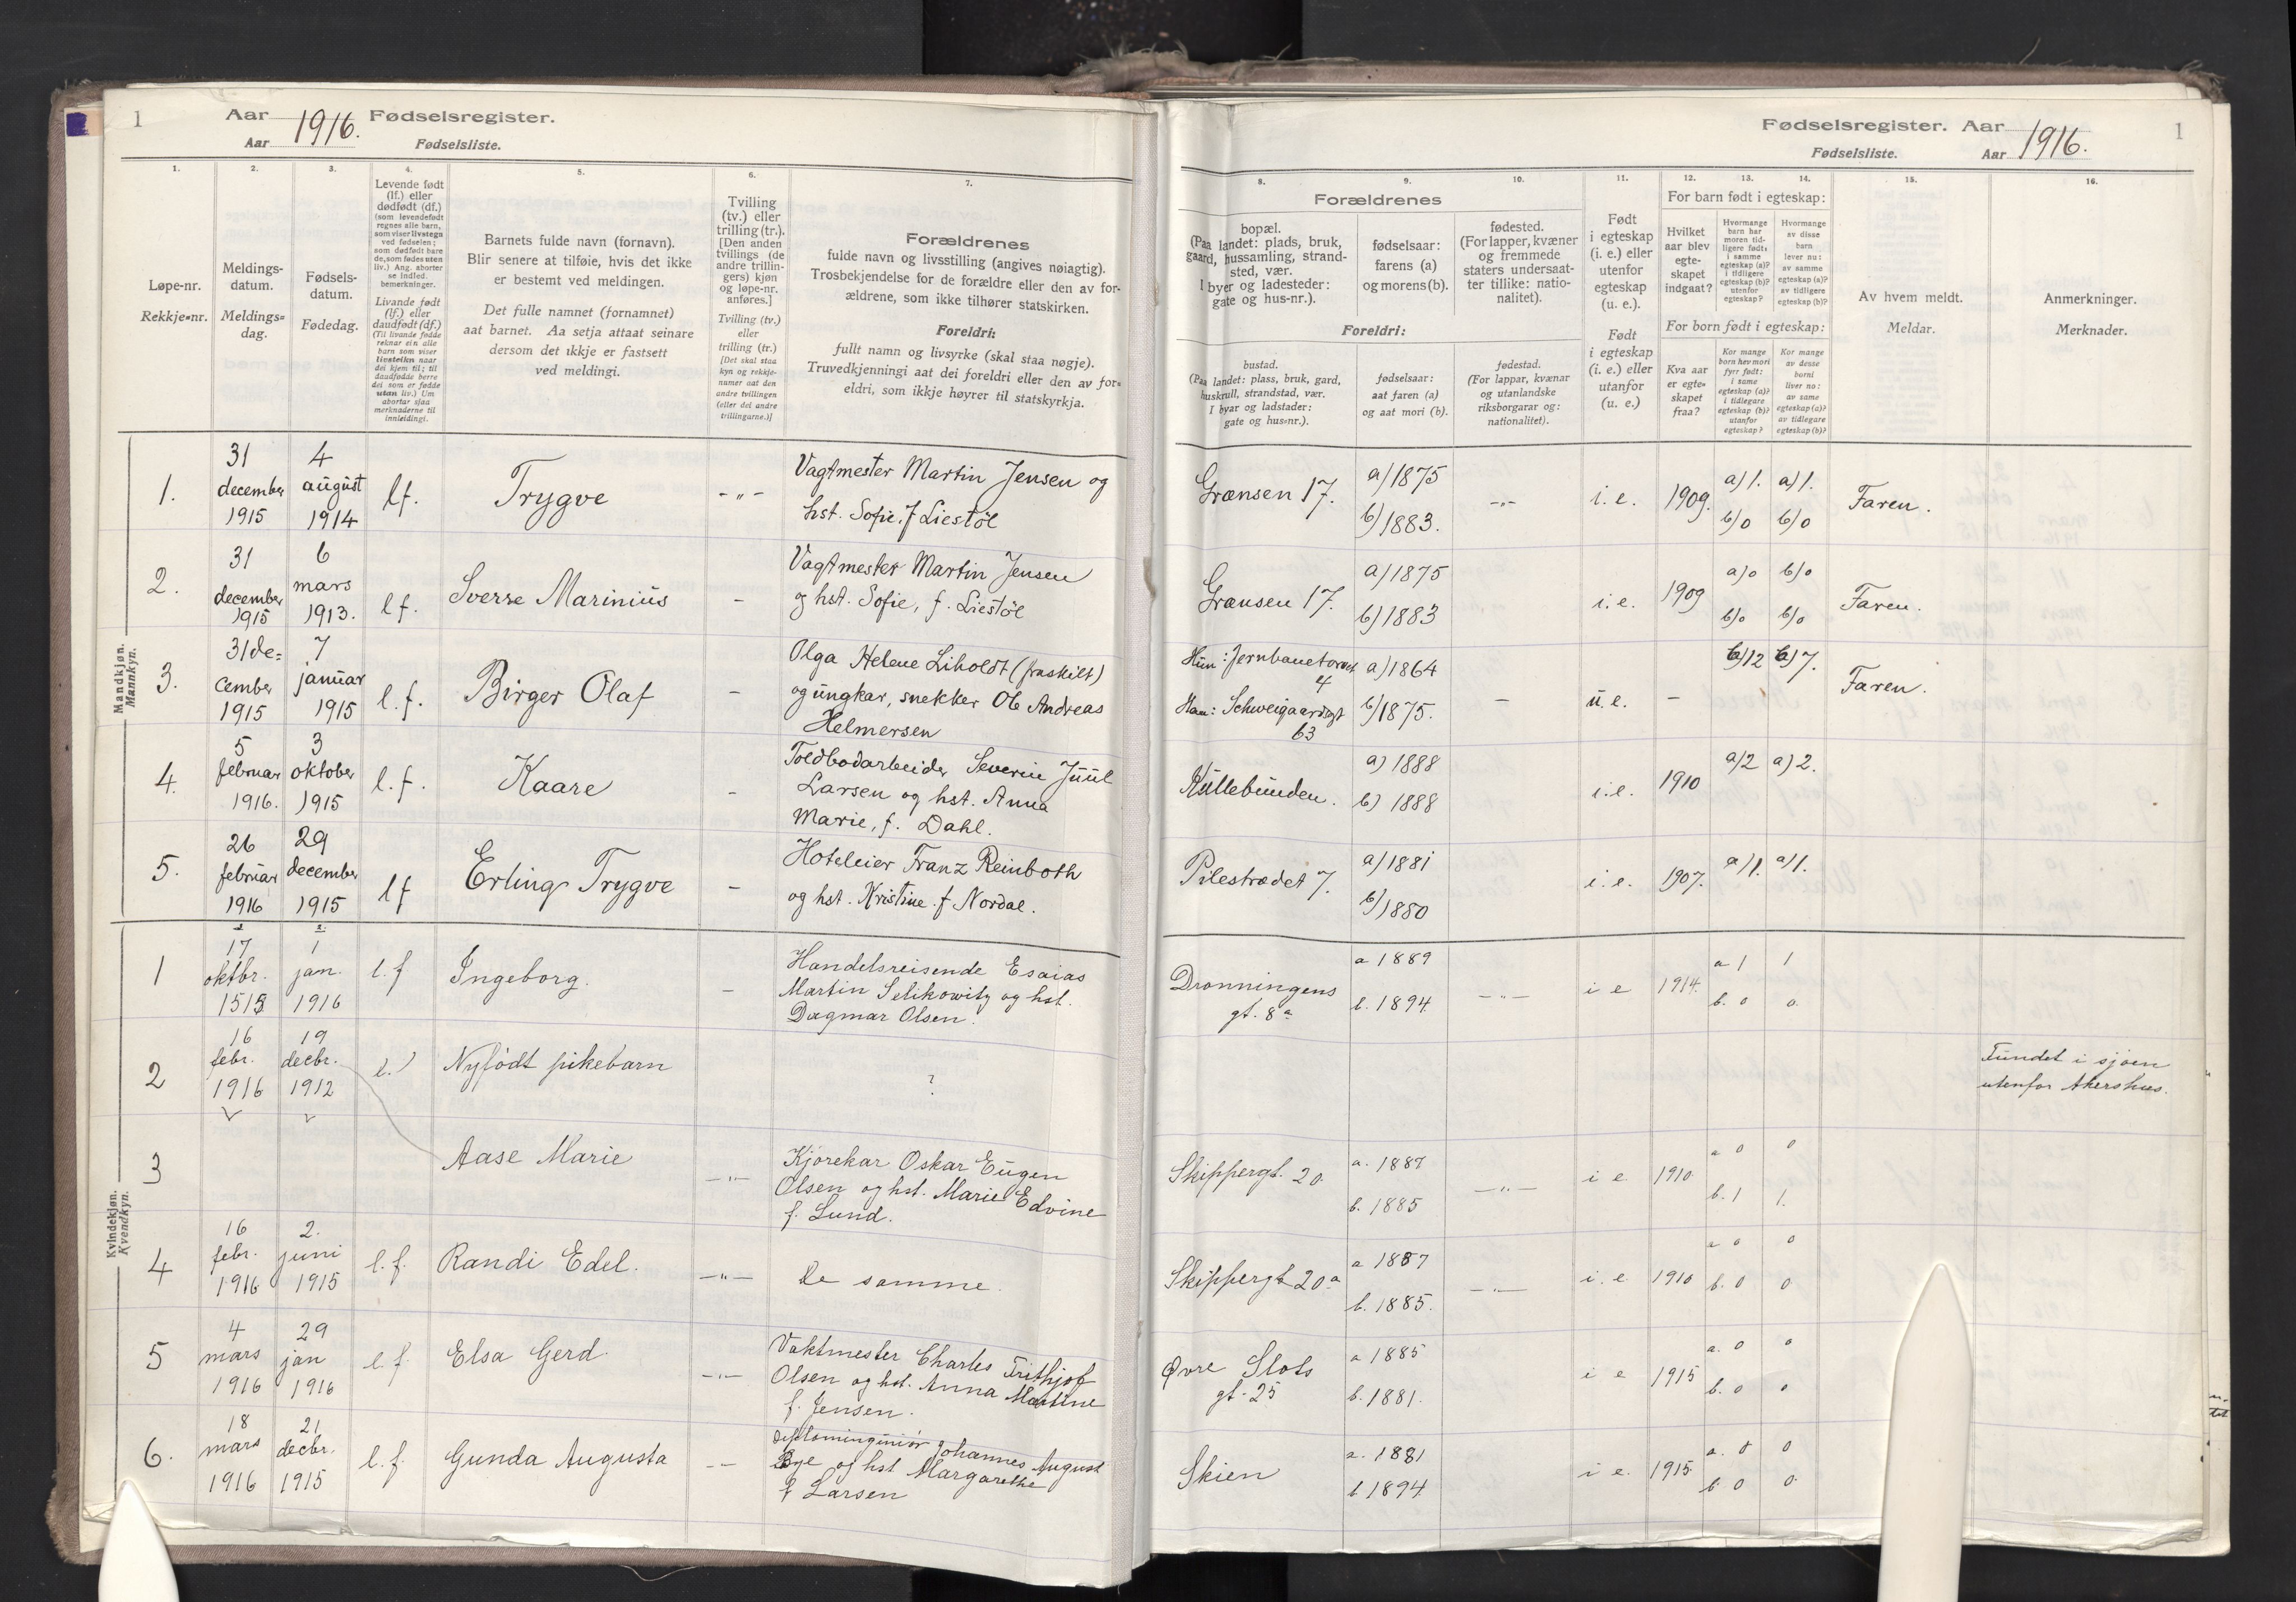 1
Aar 1916. Fødselsregister.
Aar Fødselsliste.
1. 2. 3. 4. 5. 6. 7.
Løpe-nr.
Rekkje=nr.
Meldings-
datum.
Meldings=
dag.
Fødsels-
datum.
Fødedag.
Levende født
(lf.) eller
dødfødt (df.)
(som levendefødt
regnes alle barn,
som viser livstegn
ved fødselen;
som dødfødt bare
de, som fødes uten
liv.) Ang. aborter
se indled.
bemerkninger.
Livande født
(lf.) eller
daudfødt (df.)
(Til livande fødde
reknar ein alle
barn som viser
livsteikn naar
dei kjem til; til
daudfødde berre
dei som er fødde
utan liv.) Um
abortar sjaa
merknaderne til
innleidingi.
Barnets fulde navn (fornavn).
Blir senere at tilføie, hvis det ikke
er bestemt ved meldingen.
Det fulle namnet (fornamnet)
aat barnet. Aa setja attaat seinare
dersom det ikkje er fastsett
ved meldingi.
Tvilling
(tv.) eller
trilling (tr.).
[Den anden
tvillings (de
andre trillin-
gers) kjøn
og løpe-nr.
anføres.]
Tvilling (tv.)
eller
trilling (tr.)
[Det skal staa
kyn og rekkje-
numer aat den
andre tvillingen
(eller dei andre
trillingarne.)]
Forældrenes
fulde navn og livsstilling (angives nøiagtig).
Trosbekjendelse for de forældre eller den av for-
ældrene, som ikke tilhører statskirken.
Foreldri:
fullt namn og livsyrke (skal staa nøgje).
Truvedkjenningi aat dei foreldri eller den av for=
eldri, som ikkje høyrer til statskyrkja.
Mandkjøn.
Mannkyn.
1. 31 december 1915 4 august 1914 lf. Trygve - " -
Vagtmester Martin Jensen og
hst. Sofie, f Liestøl
2. 31 december 1915 6 mars 1913. l f. Sverre Marinius -
Vagtmester Martin Jensen
og hst. Sofie, f. Liestøl
3. 31 de= cember 1915 7 januar 1915 l. f. Birger Olaf -
Olga Helene Liholdt (fraskilt)
og ungkar, snekker Ole Andreas
Helmersen
4. 5 februar 1916. 3 oktober 1915 l. f. Kaare -
Toldbodarbeider Severin Juul
Larsen og hst. Anna
Marie, f. Dahl.
5. 26 februar 1916 29 december 1915 lf Erling Trygve -
Hoteleier Franz Reinboth
og hst. Kristine. f Nordal.
Kvindekjøn.
Kvendkyn.
1 17 oktbr. 1515 1 jan. 1916 l. f Ingeborg. -
Handelsreisende Esaias
Martin Selikowitz og hst.
Dagmar Olsen.
2 16 febr. 1916 19 decbr. 1912 Nyfødt pikebarn ?
3 Aase Marie - " -
Kjørekar Oskar Eugen
Olsen og hst. Marie Edvine
f. Lund.
4 16 febr. 1916 2. juni 1915 l. f. Randi Edel. - " - De samme.
5 4 mars 1916 29 jan 1916 l. f. Elsa Gerd. - " -
Vaktmester Charles Frithjof
Olsen og hst. Anna Martine
f. Jensen.
6. 18 mars 1916 21 decbr. 1915 l. f. Gunda Augusta - -
Diplomingeniør Johannes August
Bye og hst Margarethe
f Larsen
Fødselsregister. Aar 1916. 1
Fødselsliste. Aar
8. 9. 10. 11. 12. 13. 14. 15. 16.
Forældrenes
bopæl.
(Paa landet: plads, bruk,
gaard, hussamling, strand-
sted, vær.
I byer og ladesteder:
gate og hus-nr.).
fødselsaar:
farens (a)
og morens (b).
fødested.
(For lapper, kvæner
og fremmede
staters undersaat-
ter tillike: natio-
nalitet).
Foreldri:
bustad.
(Paa landet: plass, bruk, gard,
huskrull, strandstad, vær.
I byar og ladstader:
gate og hus=nr.).
fødselsaar:
aat faren (a)
og aat mori (b).
fødestad.
(For lappar, kvænar
og utanlandske
riksborgarar og:
nationalitet).
Født
i egteskap
(i. e.) eller
utenfor
egteskap
(u. e.).
Født
i egteskap
(i. e.) eller
utanfor
(u. e.)
For barn født i egteskap:
Hvilket
aar blev
egte-
skapet
indgaat?
Hvormange
barn har
moren tid-
ligere født:
i samme
egteskap (a)?
i tidligere
egteskap (b)?
utenfor
egteskap?
Hvormange
av disse
barn
lever nu:
av samme
egteskap (a)?
av tidligere
egteskap (b)?
For born født i egteskap:
Kva aar
er egte-
skapet
fraa?
Kor mange
born hev mori
fyrr født:
i same
egteskap (a)?
i tidlegare
egteskap (b)?
utanfor
egteskap?
Kor mange
av desse
borni
liver no:
av same
egteskap (a)?
av tidlegare
egteskap (b)?
Av hvem meldt.
Meldar.
Anmerkninger.
Merknader.
Grænsen 17. a) 1875 b) 1883. - " - i. e. 1909. a) 1. b) 0 a) 1. b) 0 Faren.
Grænsen 17. a) 1875 b) 1883 i. e. 1909 a) 0 b) 0 b) 0 b) 0 Faren.
Hun: Jernbanetorvet 4
Han: Schweigaardsgt 63
a) 1864 b) 1875. - u. e. - b) 12 b) 7. Faren.
Küllebunden. a) 1888 b) 1888 i. e. 1910 a) 2 a) 2.
Pilestrædet 7. a) 1881 b) 1880 i. e. 1907. a) 1. a) 1.
Dronningens
gt. 8a a 1889 b. 1894. - " - i e 1914. a 1 b. 0 1 0.
Fundet i sjøen
utenfor Akershus.
Skippergt. 20. a. 1887 b. 1885 - " - i e 1910 a 0 b. 1 0 1.
Skippergt 20a a 1887 b. 1885. - " - i. e 1910 a 0 b. 0 0 0
Øvre Slots
gt. 25 a 1885 b. 1881. i e 1915 a. 0 b. 0 0 0
Skien a. 1881 b 1894 i e. 1915. a. 0 b. 0 0 0.